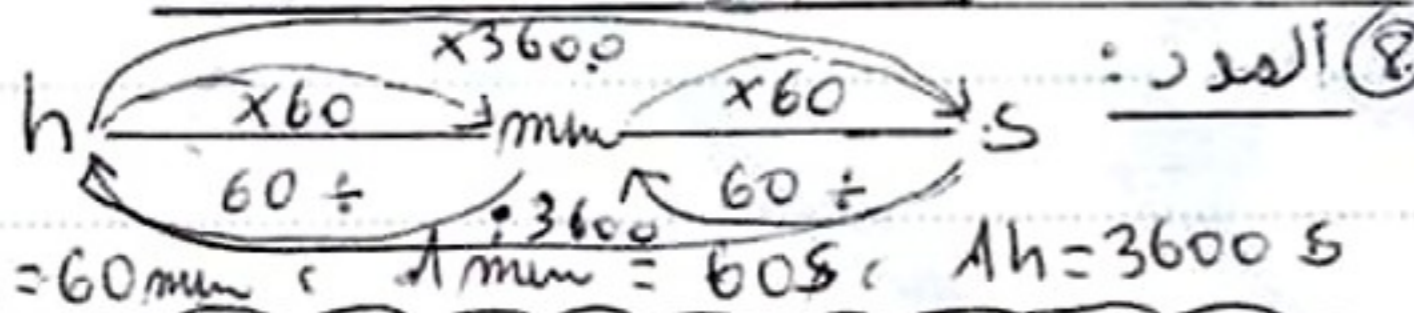 ⑧ المدد :
×3600
h ×60 min ×60 s
60 ÷ 60 ÷
÷3600
=60min ، 1min = 60s ، 1h = 3600 s